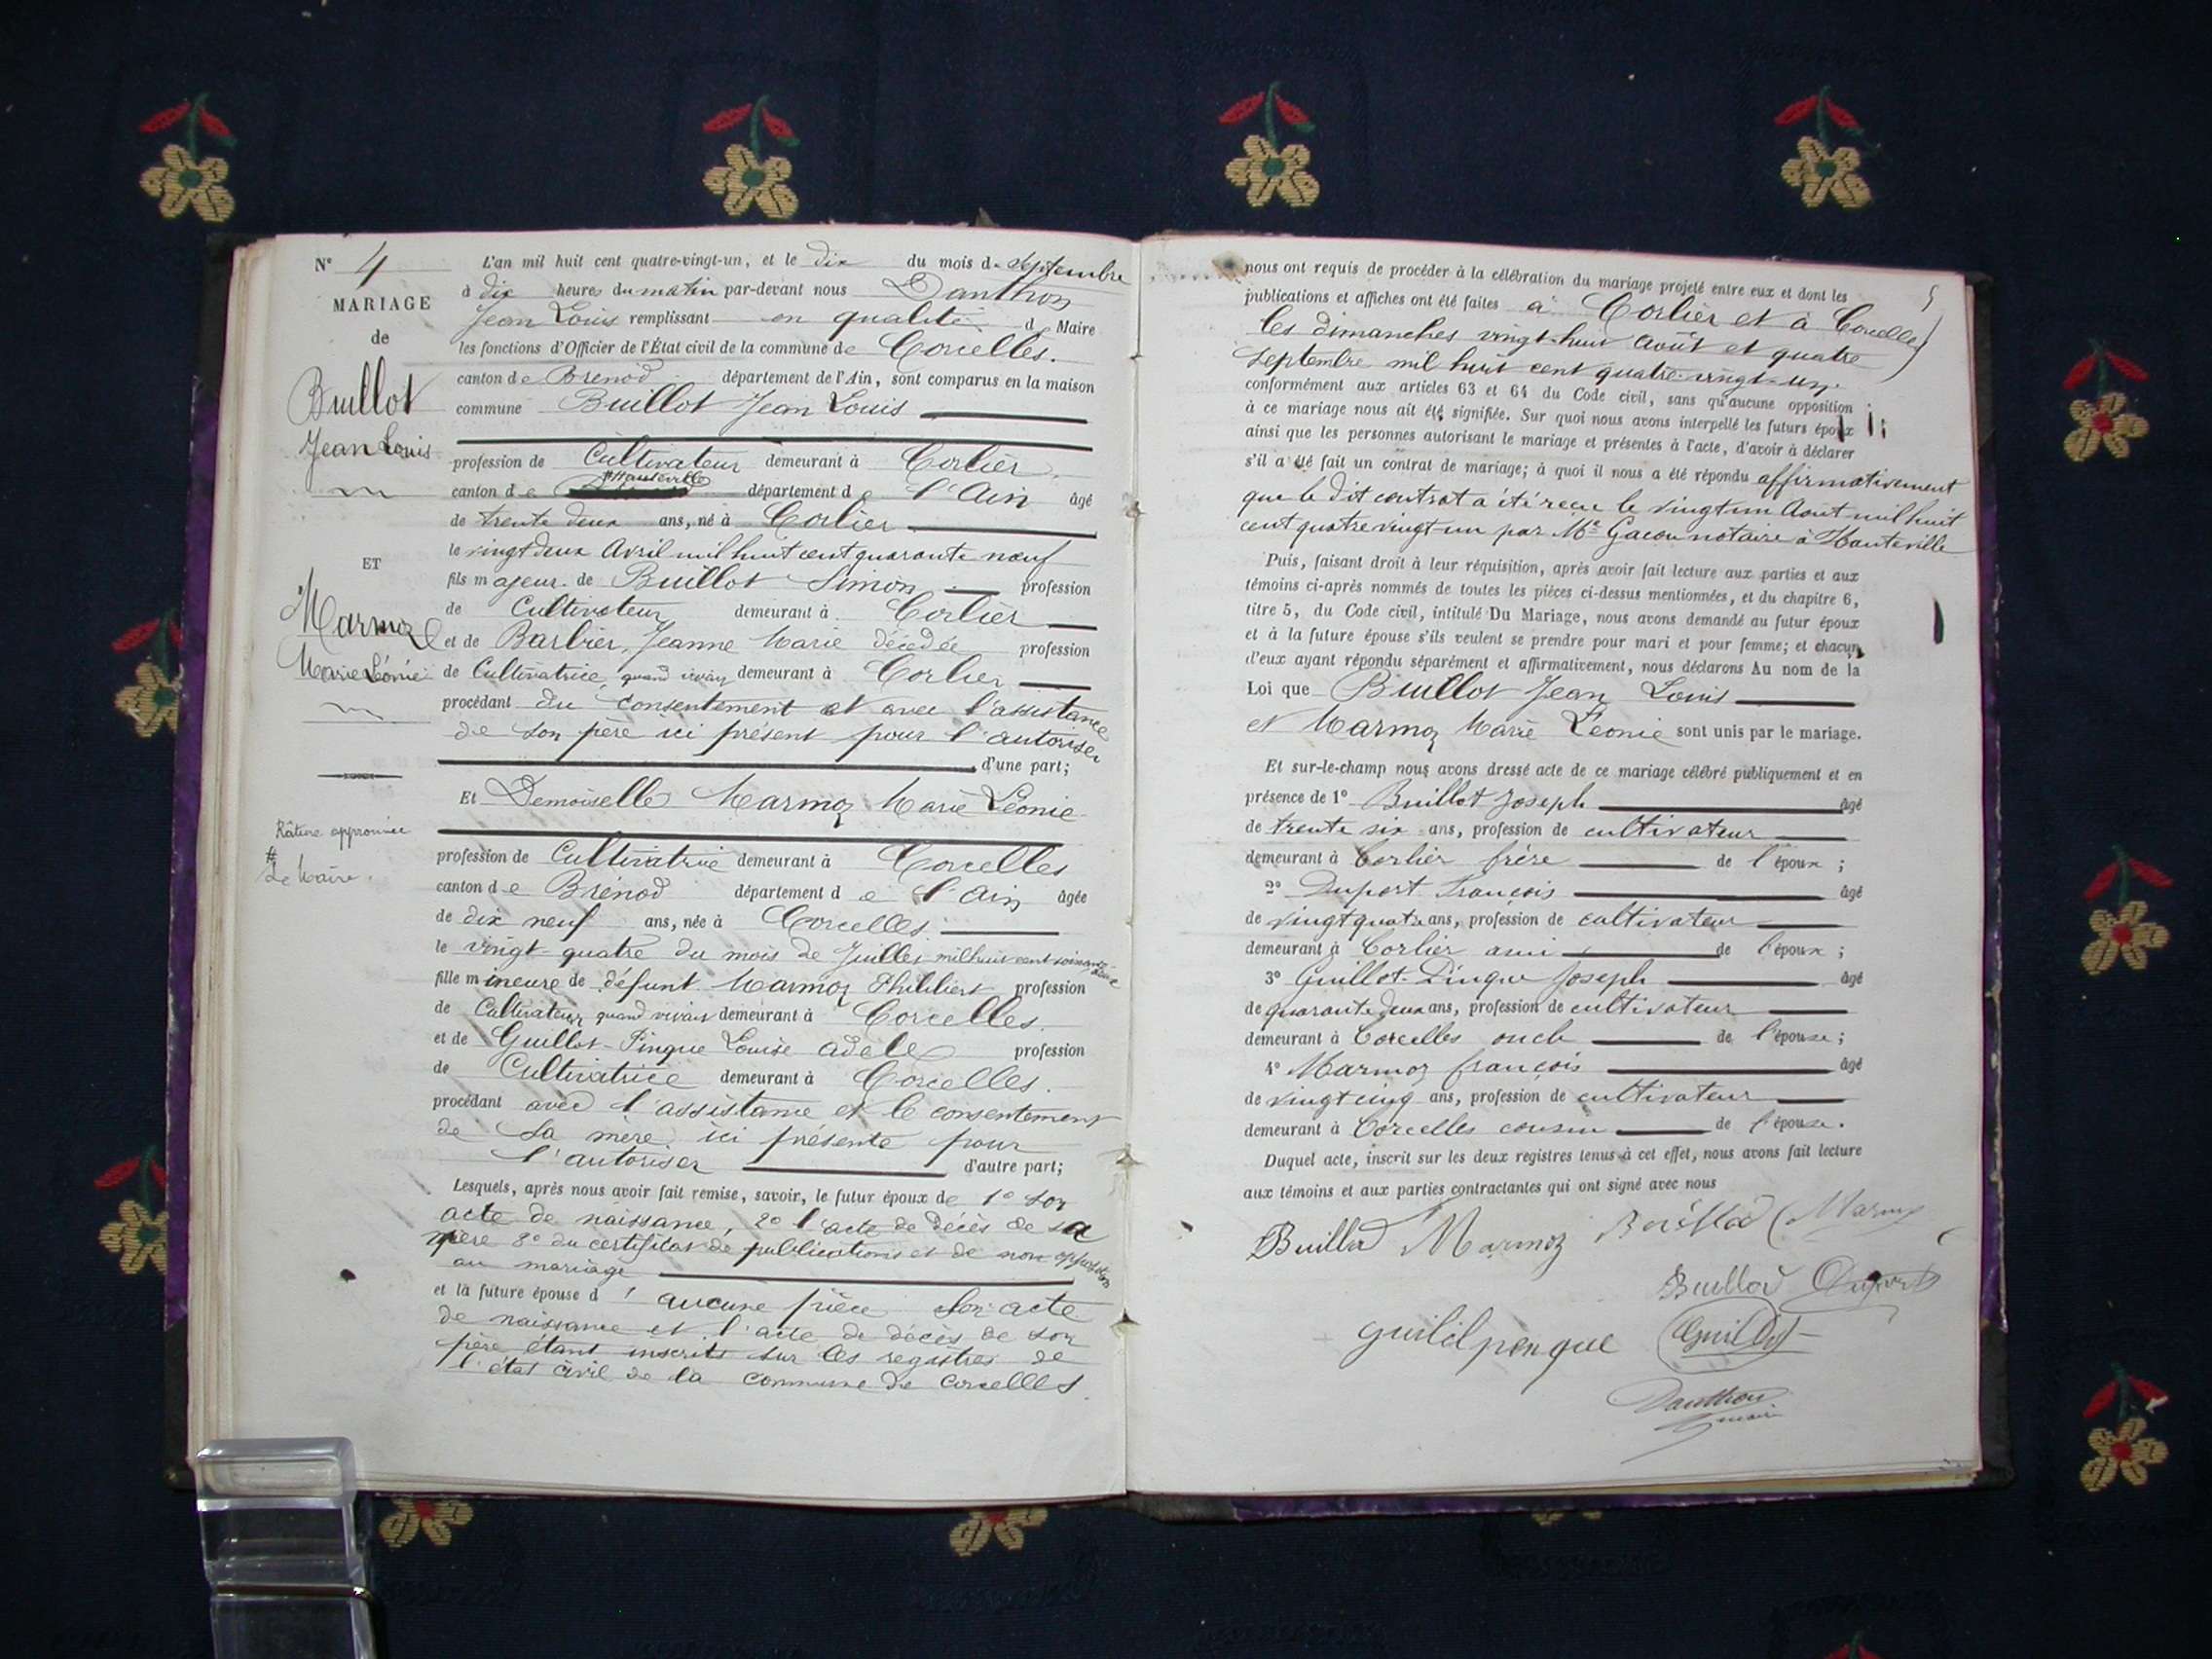 N° 4
MARIAGE
de
Buillot
Jean Louis
ET
Marmoz
Marie Léonie
Râture approuvée
#
Le Maire.
L'an mil huit cent quatre-vingt-un, et le dix du mois de Septembre
à dix heures du matin par-devant nous Danthon
Jean Louis remplissant en qualité d Maire
les fonctions d'Officier de l'État civil de la commune de Corcelles.
canton de Brénod département de l'Ain, sont comparus en la maison
commune Buillot Jean Louis
profession de Cultivateur demeurant à Corlier
# Hauteville
canton de département de l'Ain âgé
de trente deux ans, né à Corlier
le vingt deux Avril mil huit cent quarante neuf
fils majeur de Buillot Simon profession
de Cultivateur demeurant à Corlier
et de Barbier, Jeanne Marie décédée profession
de Cultivatrice quand vivait demeurant à Corlier
procédant du consentement et avec l'assistance
de son père ici présent pour l'autoriser
d'une part;
Et Demoiselle Marmoz Marie Léonie
profession de Cultivatrice demeurant à Corcelles
canton de Brénod département de l'Ain âgée
de dix neuf ans, née à Corcelles
le vingt quatre du mois de Juillet mil huit cent soixante-deux
fille mineure de défunt Marmoz Philibert profession
de Cultivateur quand vivait demeurant à Corcelles.
et de Guillot-Pingue Louise adèle profession
de Cultivatrice demeurant à Corcelles.
procédant avec l'assistance et le consentement
de sa mère ici présente pour
l'autoriser d'autre part;
Lesquels, après nous avoir fait remise, savoir, le futur époux de 1° son
acte de naissance, 2° l'acte de décès de sa
mère 3° du certificat de publications et de non opposition
au mariage
et la future épouse d'aucune pièce son acte
de naissance et l'acte de décès de son
père étant inscrits sur les registres de
l'état civil de la commune de Corcelles.
5
nous ont requis de procéder à la célébration du mariage projeté entre eux et dont les
publications et affiches ont été faites à Corlier et à Corcelles
les dimanches vingt-huit Août et quatre
Septembre mil huit cent quatre-vingt-un.
conformément aux articles 63 et 64 du Code civil, sans qu'aucune opposition
à ce mariage nous ait été signifiée. Sur quoi nous avons interpellé les futurs époux
ainsi que les personnes autorisant le mariage et présentes à l'acte, d'avoir à déclarer
s'il a été fait un contrat de mariage; à quoi il nous a été répondu affirmativement
que le dit contrat a été reçu le vingt un Aout mil huit
cent quatre vingt-un par Me Gacon notaire à Hauteville
Puis, faisant droit à leur réquisition, après avoir fait lecture aux parties et aux
témoins ci-après nommés de toutes les pièces ci-dessus mentionnées, et du chapitre 6,
titre 5, du Code civil, intitulé Du Mariage, nous avons demandé au futur époux
et à la future épouse s'ils veulent se prendre pour mari et pour femme; et chacun
d'eux ayant répondu séparément et affirmativement, nous déclarons Au nom de la
Loi que Buillot Jean Louis
et Marmoz Marie Léonie sont unis par le mariage.
Et sur-le-champ nous avons dressé acte de ce mariage célébré publiquement et en
présence de 1° Buillot Joseph âgé
de trente six ans, profession de cultivateur
demeurant à Corlier frère de l'époux ;
2° Duport François âgé
de vingt quatre ans, profession de cultivateur
demeurant à Corlier ami de l'époux ;
3° Guillot-Pingue Joseph âgé
de quarante deux ans, profession de cultivateur
demeurant à Corcelles oncle de l'épouse ;
4° Marmoz françois âgé
de vingt cinq ans, profession de cultivateur
demeurant à Corcelles cousin de l'épouse.
Duquel acte, inscrit sur les deux registres tenus à cet effet, nous avons fait lecture
aux témoins et aux parties contractantes qui ont signé avec nous
Buillod Marmoz Buillod Marmoz
Buillod Duport
guilil penque Guillot
Danthon
maire